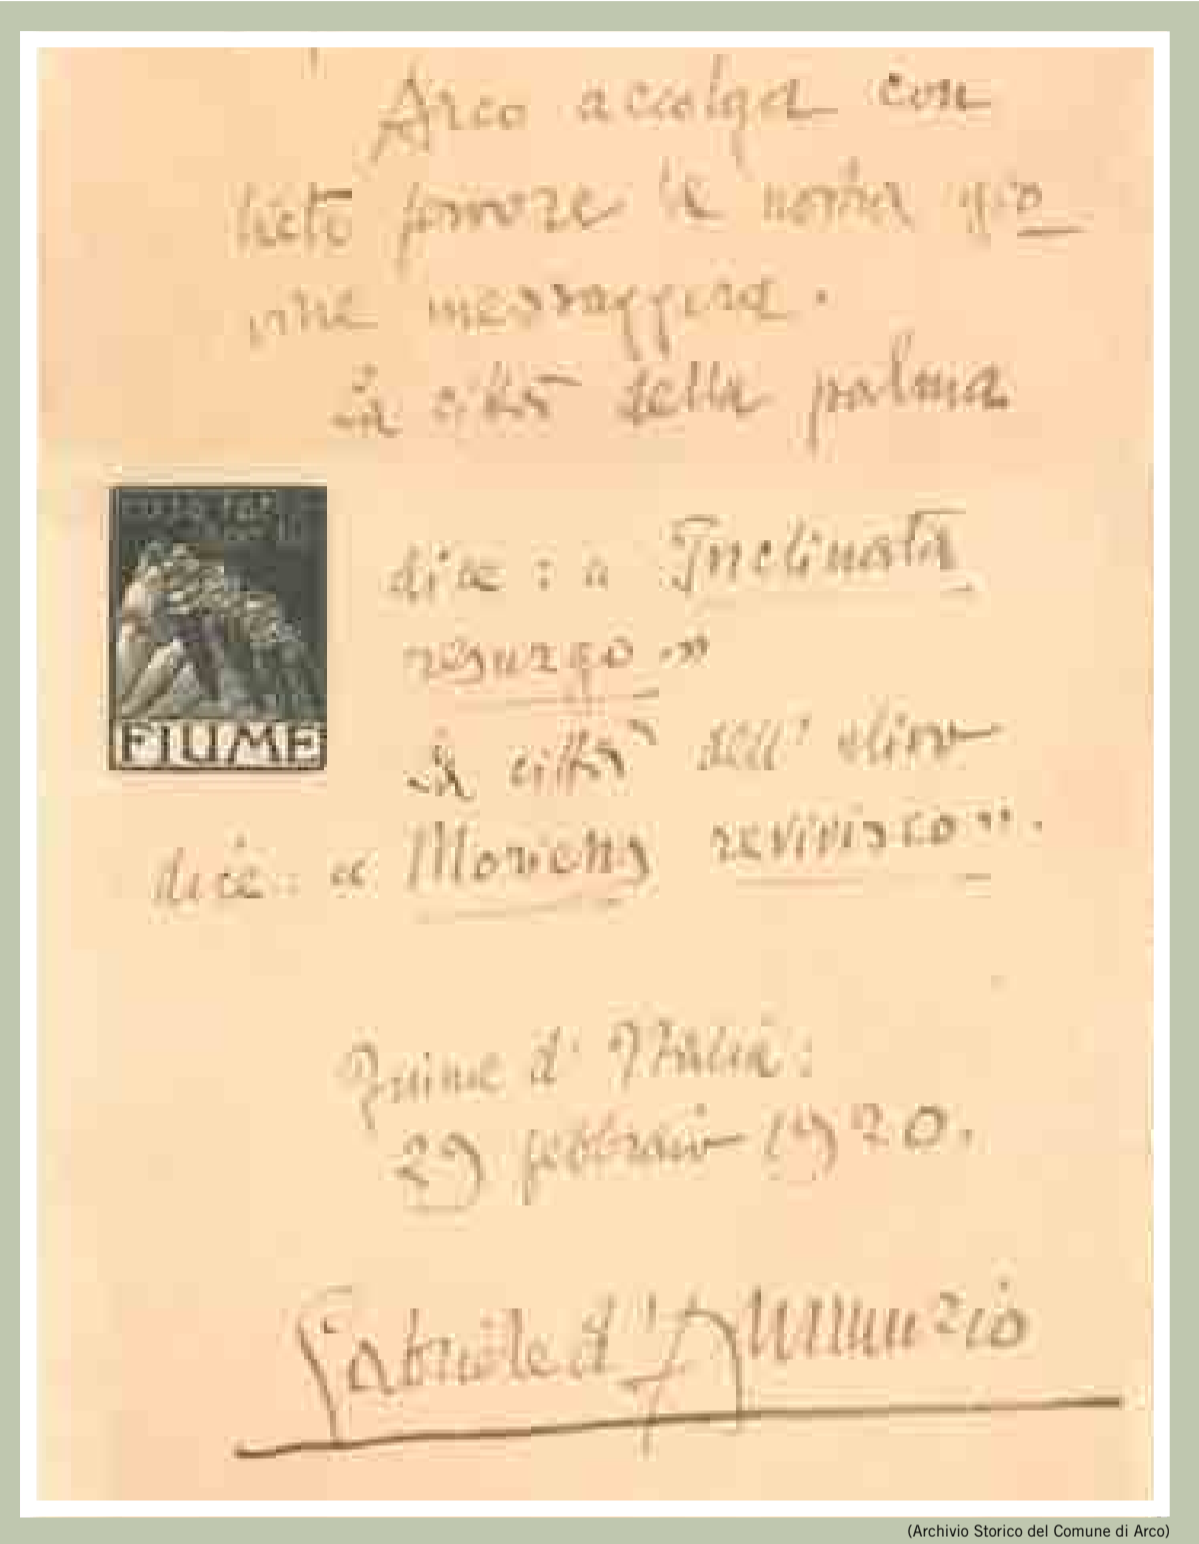 Arco accolga con
lieto favore la nostra gio
vine messaggera.
La città della palma
dice: « Inclinata
resurgo.»
FIUME
La città dell' olivo
dice: « Moriens revivisco».
Fiume d' Italia:
29 febbraio 1920.
Gabriele d'Annunzio
(Archivio Storico del Comune di Arco)